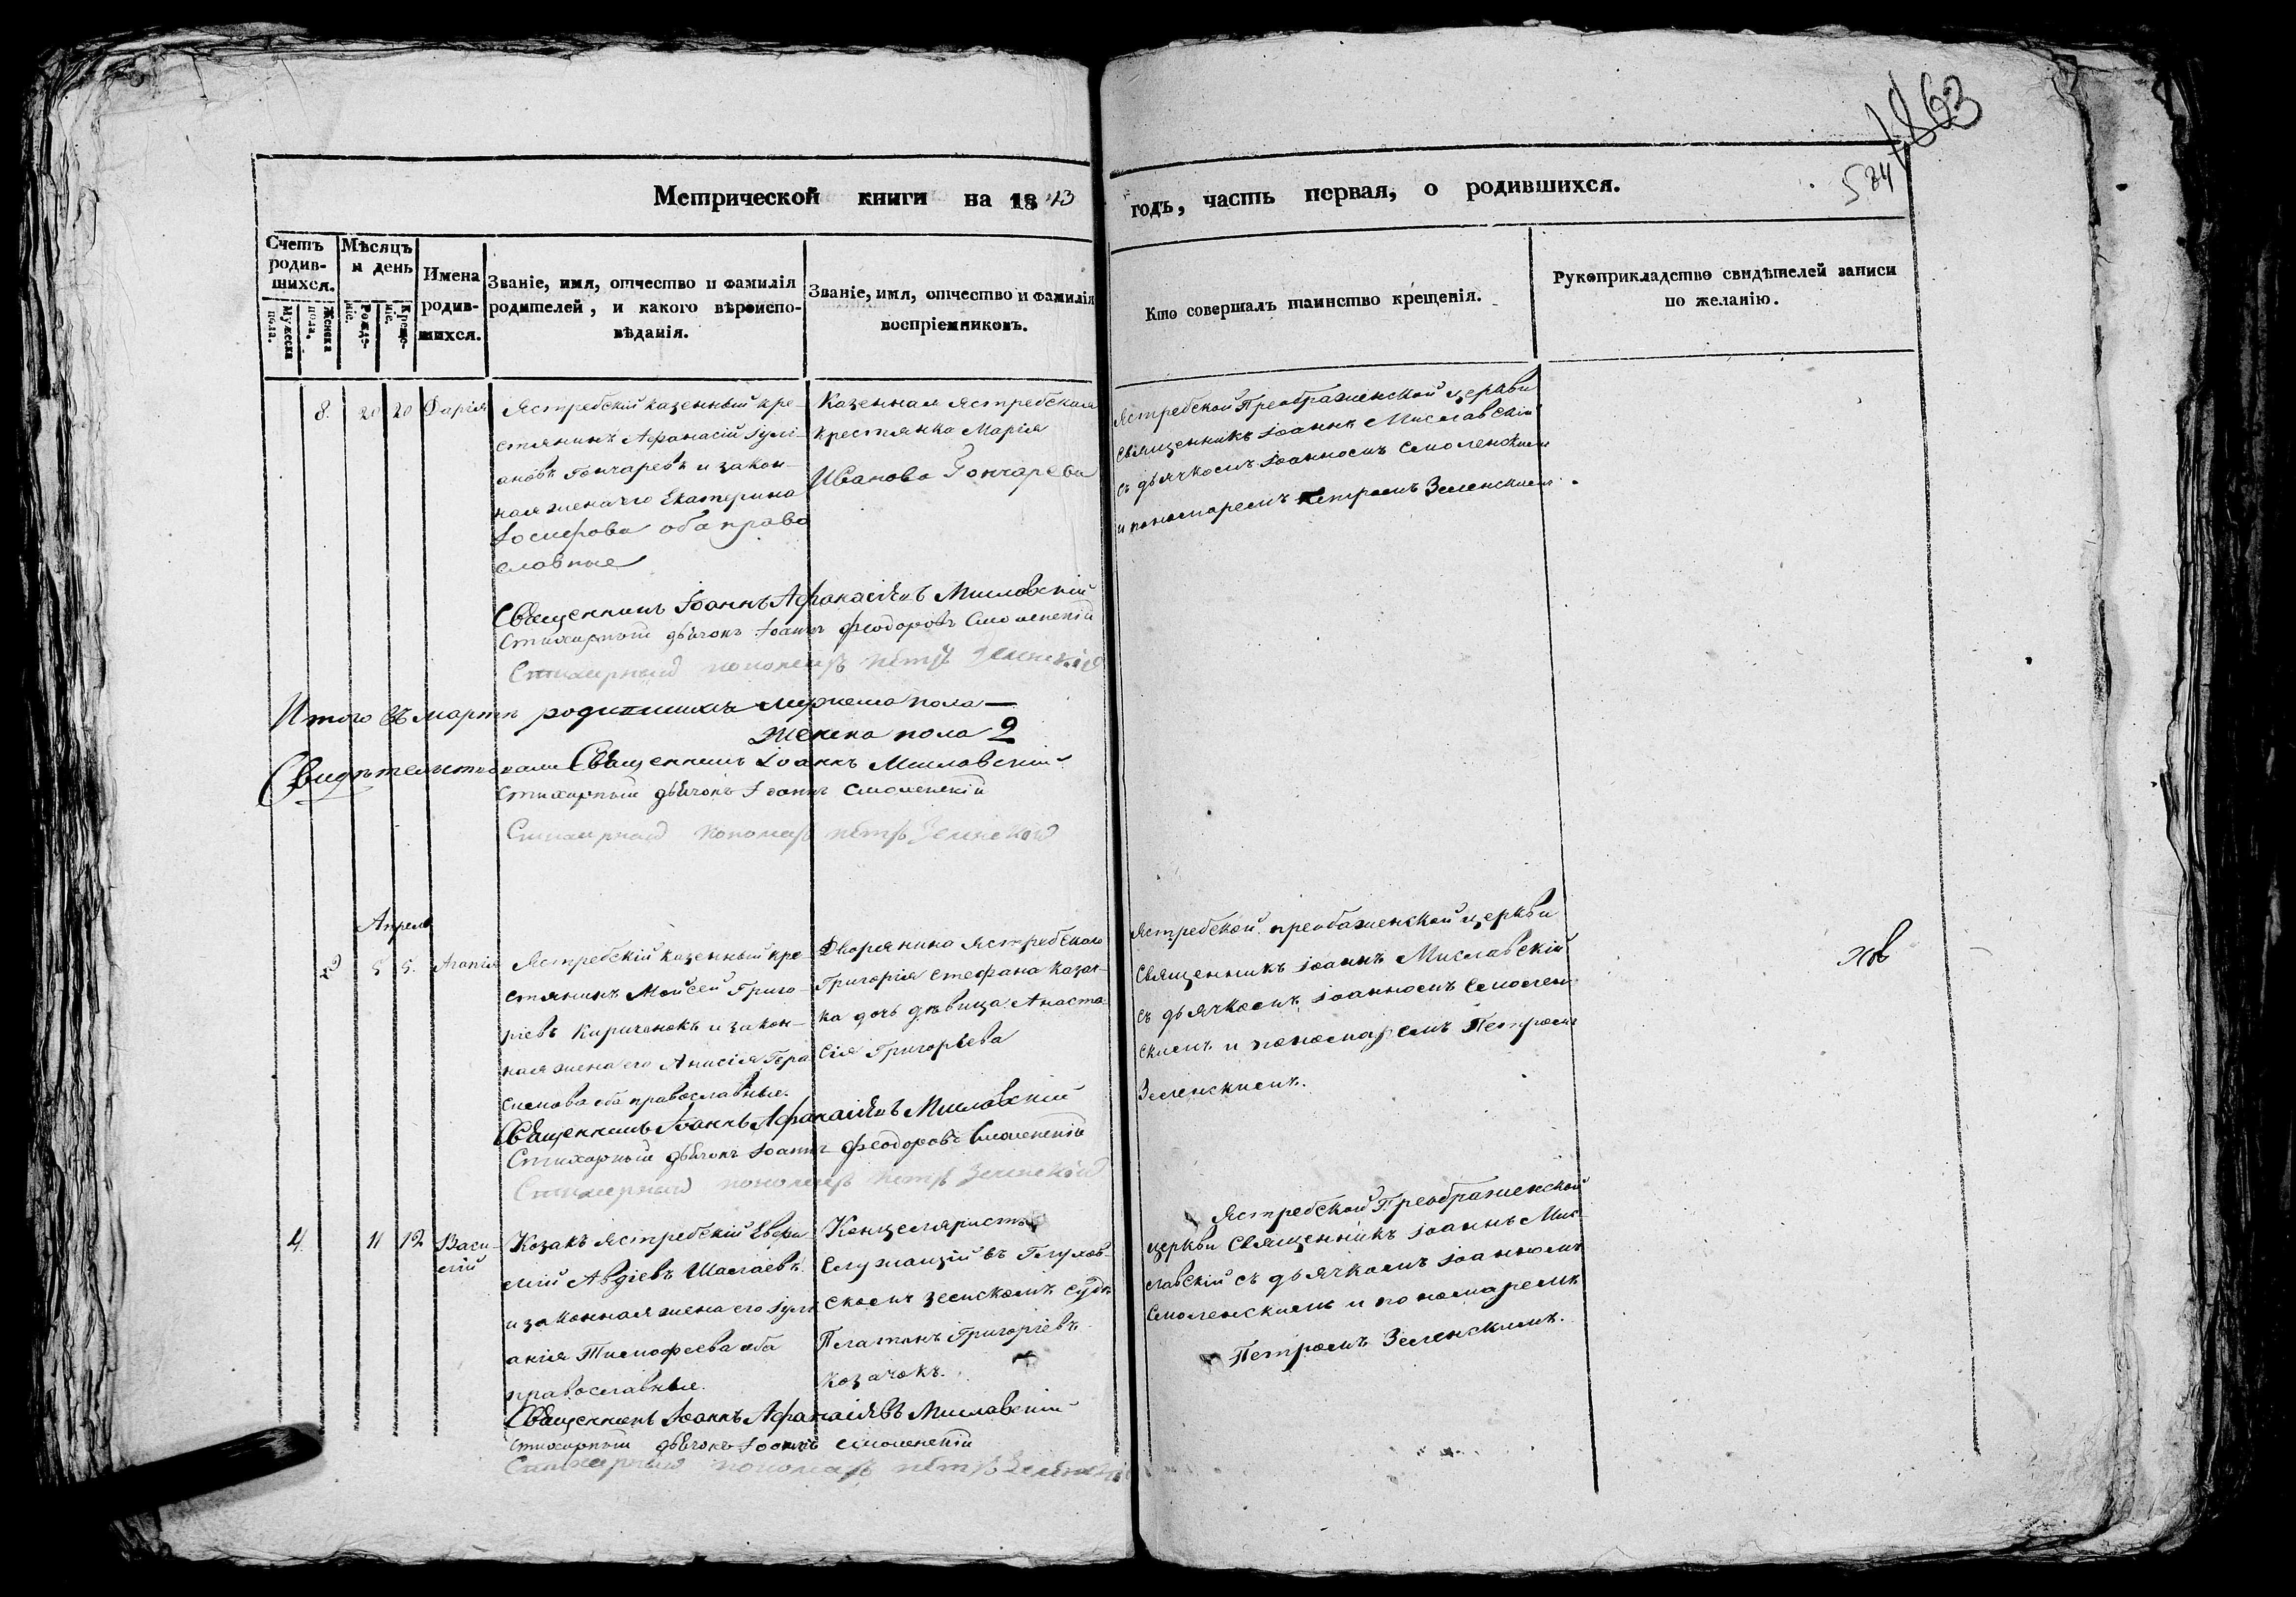 1863
524
Метрической книги на 1843 годъ, часть первая, о родившихся.
Счетъ родив-шихся.
Мужеска пола.
Женска пола.
Мѣсяцъ и день
Рожде-ніе.
Креще-ніе.
Имена родив-шихся.
Званіе, имя, отчество и фамилія
родителей, и какого вѣроиспо-
вѣданія.
Званіе, имя, отчество и фамилія
воспріемниковъ.
Кто совершалъ таинство крещенія.
Рукоприкладство свидѣтелей записи
по желанію.
8. 20 20 Дарія
Ястребскій казенный кре-
стянинъ Афанасій Іулі-
ановъ Гончаревъ и закон-
ная жена его Екатерина
Іосифова оба право
славные
Казенная Ястребская
крестянка Марія
Иванова Гончарева
Ястребской Преображенской церкви
священникъ Іоаннъ Миславскій
съ дьячкомъ Іоанномъ Смоленскимъ
и пономаремъ Петромъ Зеленскимъ.
Священникъ Іоаннъ Афанасіевъ Миславскій
Стихарный дьячокъ Іоаннъ Феодоровъ Смоленскій
Стихарный пономарь Петръ Зеленскій
Итого въ мартѣ родившихся мужеска пола —
женска пола 2
Священникъ Іоаннъ Миславскій
Стихарный дьячокъ Іоаннъ Смоленскій
Стихарный пономарь Петръ Зеленскій
Апрель
9 5 5. Агапія
Ястребскій казенный кре-
стянинъ Моисей Григо-
ріевъ Кириченокъ и закон-
ная жена его Анисія Гера
симова оба православные.
Дворянина Ястребского
Григорія Стефана Казач-
ка дочь дѣвица Анаста-
сія Григорьева
Ястребской преображенской церкви
священникъ Іоаннъ Миславскій
съ дьячкомъ Іоанномъ Смолен-
скимъ и пономаремъ Петромъ
Зеленскимъ.
Священникъ Іоаннъ Афанасіевъ Миславскій
Стихарный дьячокъ Іоаннъ Феодоровъ Смоленскій
Стихарный пономарь Петръ Зеленскій
4. 11 12 Васи-
лій
Козакъ Ястребскій
Авдіевъ
и законная жена его Іулі
анія Тимофеева оба
православные.
Канцеляристъ
служащій въ Глухов-
скомъ земскомъ судѣ
Платонъ Григоріевъ
Козачокъ.
Ястребской Преображенской
церкви священникъ Іоаннъ Мис-
лавскій съ дьячкомъ Іоанномъ
Смоленскимъ и пономаремъ
Петромъ Зеленскимъ.
Священникъ Іоаннъ Афанасіевъ Миславскій
Стихарный дьячокъ Іоаннъ Смоленскій
Стихарный пономарь Петръ Зеленскій